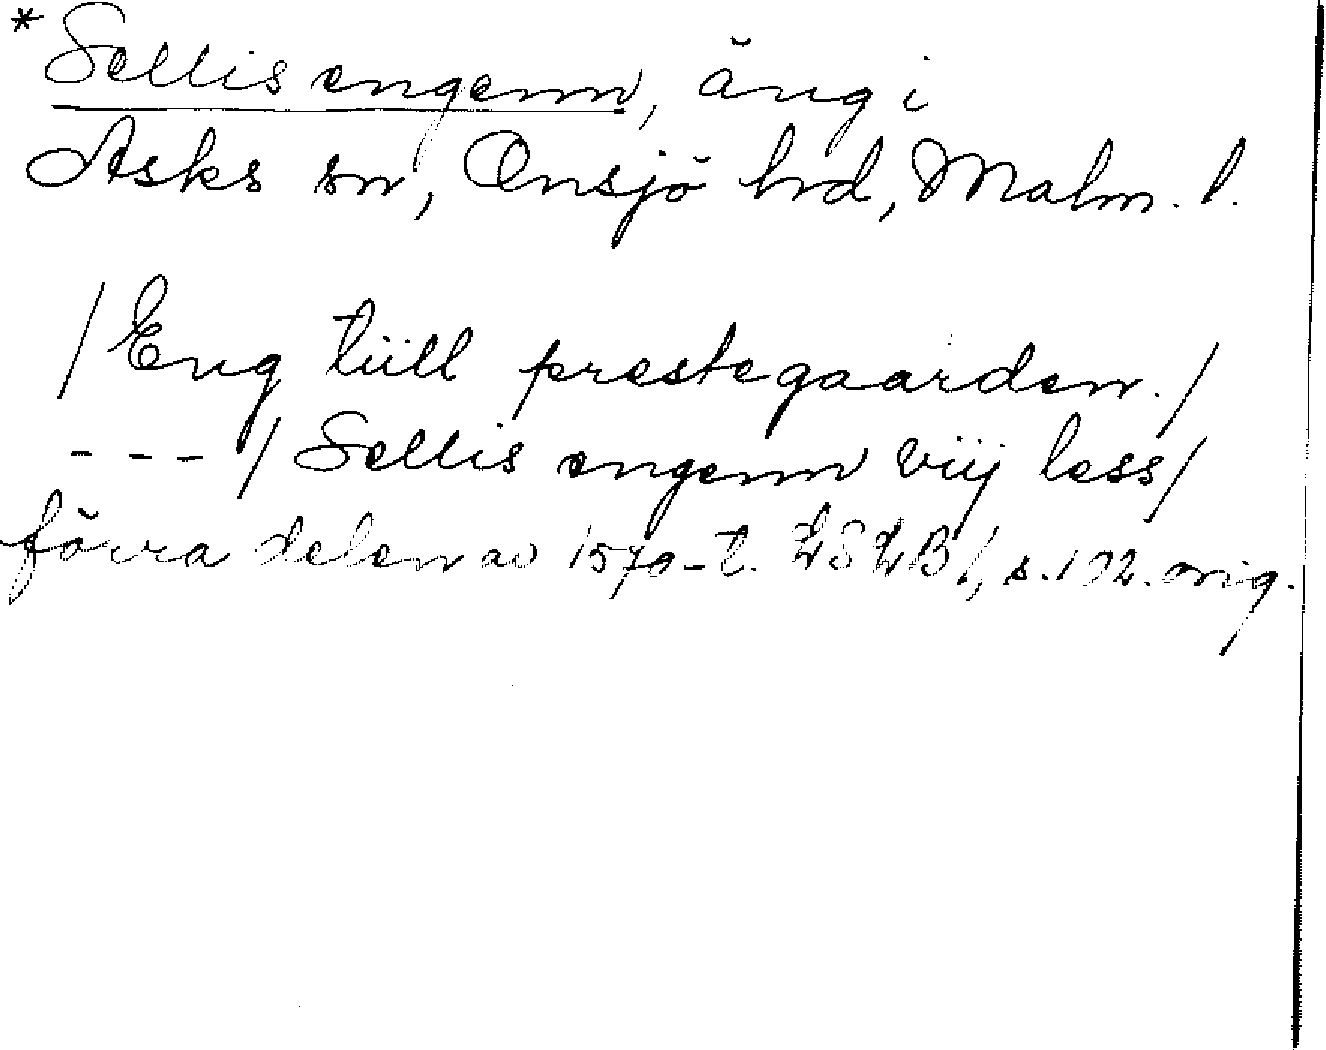 *Sellis engenn, äng i
Asks sn, Onsjö hrd, Malm. l.
/Eng tiill prestegaarden./
---/Sellis engenn viij less/
förra delen av 1570-t. LSLB I, s. 192. orig.